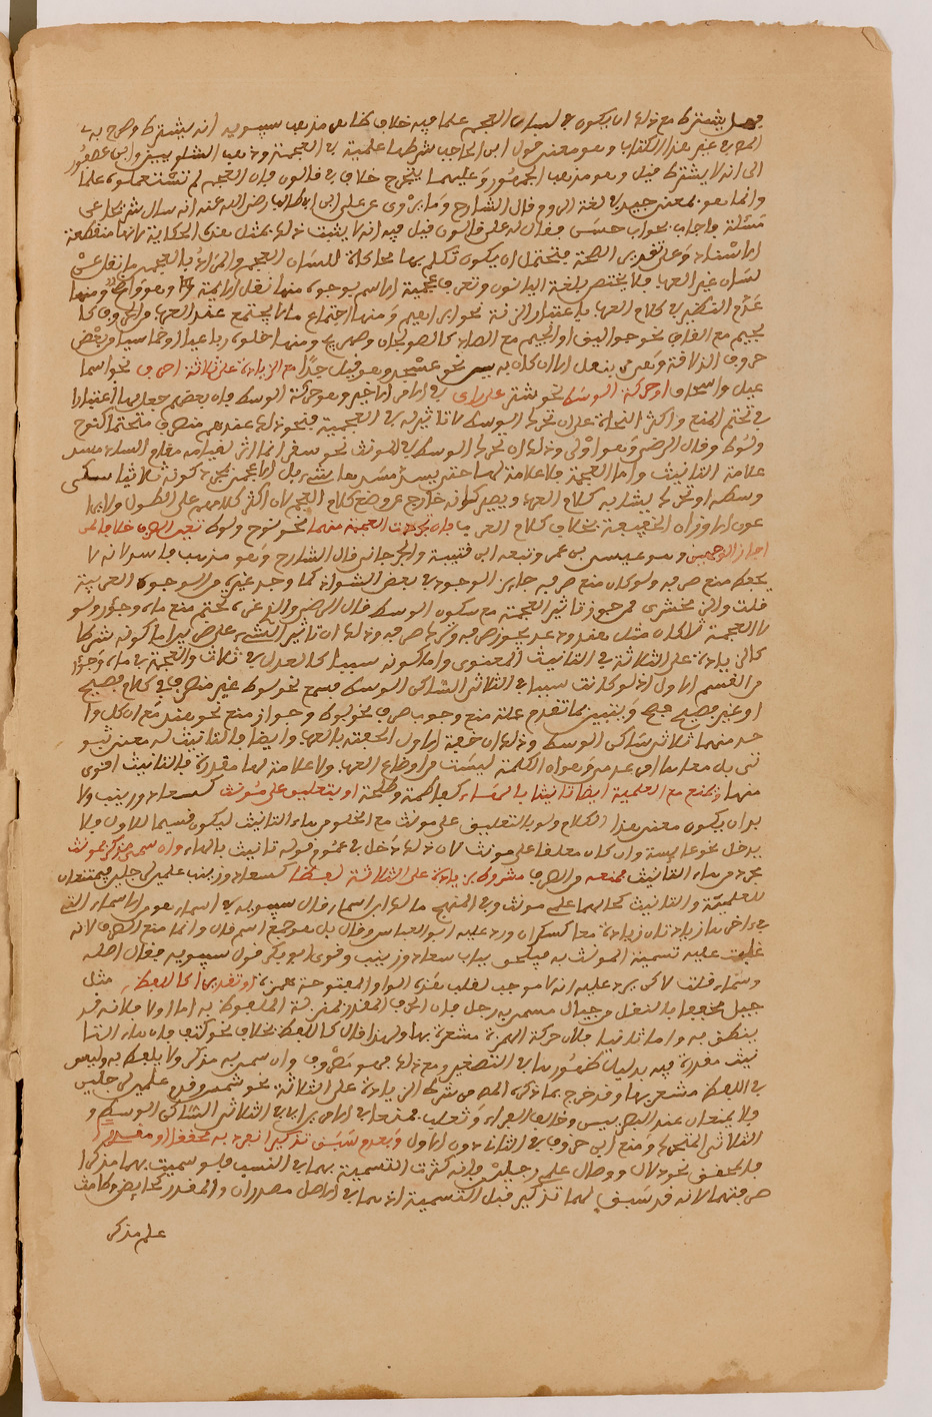 وهل يشترط مع ذلك ان يكون في لسان العجم علما فيه خلاف ظاهر مذهب سيبويه انه يشترط وصرح به
المص في غير هذا الكتاب وهو معنى قول ابن الحاجب شرطها علمية في العجمة وذهب الشلوبين وابن عصفور
الى انه لا يشترط قيل وهو مذهب الجمهور وعليهما ينخرج خلاف في قالون فان العجم لم تستعملوه علما
وانما هو بمعنى جيد في لغة الروم قال الشارح وما يروى عن علي ابن ابي طالب رضي الله عنه انه سال شريحا عن
مسئلة فاجاب بجواب حسن فقال له علي قالون قيل فيه انه لا يثبت ذلك بمثل هذه الحكاية لانها منقطعة
الاسناد وعلى تقدير الصحة فيحتمل ان يكون تكلم بها محاكاة للسان العجم والمراد بالعجمي ما نقل عن
لسان غير العرب ولا يختص بلغة الفرس وتعرف عجمية الاسم بوجوه منها نقل الايمة وهو واضح ومنها
عدم النظير في كلام العرب باعتبار الزنة نحو ابراهيم ومنها اجتماع ما لا يجتمع عند العرب من الحروف كا
لجيم مع القاف نحو جوليق او الجيم مع الصاد كالصولجان وصهريج ومنها خلوه رباعيا او خماسيا من بعض
حروف الذلاقة وهي مر بنفل الا ان كان به سين نحو عسجد وهو قليل جدا مع الزيادة على ثلاثة احرف نحو اسما
عيل واسحاق او حركة الوسط نحو شتر على راي في الامر الاخير وهو حركة الوسط فان بعضهم جعل لها اعتبارا
في تحتم المنع واكثر النحاة على ان تحرك الوسط لا تاثير له في العجمية فنحو لمك عندهم منصرف متحتما كنوح
ولوط وقال الرضي وهو اولى وذلك ان تحرك الوسط في المونث نحو سقر انما اثر لقيامه مقام الساد مسد
علامة التانيث واما العجمة فلا علامة لها حتى يسد مسدها شيء بل الاعجمي بمجرد كونه ثلاثيا سكن
وسطه او تحرك يشابه كلام العرب ويصير كانه خارج عن وضع كلام العجم لان اكثر كلامهم على الطول ولا يرا
عون الاوزان الخفيفة بخلاف كلام العرب فان تجردت العجمة منهما نحو نوح ولوط تعين الصرف خلافا لمن
اجاز الوجهين وهو عيسى بن عمر وتبعه ابن قتيبة والجرجاني قال الشارح وهو مذهب فاسد لانه لا
يحفظ منع صرفه ولو كان منع صرفه جايز الوجود في بعض الشواذ كما وجد غيره من الوجوه الغريبة
قلت والزمخشري ممن جوز تاثير العجمة مع سكون الوسط قال الرضي والذي غره تحتم منع ماه وجور ولو
لا العجمة لكان مثل هند ودعد يجوز صرفه وترك صرفه وذلك ان تاثير الشيء على ضربين اما كونه شرطا
كالزيادة على الثلاثة في التانيث المعنوي واما كونه سببا كالعدل في ثلاث والعجمة في ماه وجور
من القسم الاول اذ لو كانت سببا في الثلاثي الساكن الوسط لسمع نحو لوط غير منصرف في كلام فصيح
او غير فصيح وتبين بما تقدم علة منع وجوب صرف نحو لوط وجواز منع نحو هند مع ان كل وا
حد منهما ثلاثي ساكن الوسط وذلك ان خفة الاول الحقته بالعرب وايضا فالتانيث له معنى ثبو
تي بل معناه امر عدمي وهو ان الكلمة ليست من اوضاع العرب ولا علامة لها مقدرة فالتانيث اقوى
منها ويمنع مع العلمية ايضا تانيث بالهاء كفاطمة وطلحة او بتعليق على مونث كسعاد وزينب ولا
بد ان يكون معنى هذا الكلام ولو بالتعليق على مونث مع الخلو من هاء التانيث ليكون قسيما للاول ولا
يدخل نحو عايشة وان كان معلقا على مونث لان ذلك دخل في عموم قوله تانيث بالهاء وان سمي مذكر بمونث
مجرد من هاء التانيث فمنعه من الصرف مشروط بزيادة على الثلاثة لفظا كسعاد وزينب علمين لرجلين فيمتنعان
للعلمية والتانيث كحالهما علمي مونث وفي المنهج مالك ابراسم ارقال سيبويه في اسماء هو من الاسماء التي
في اخرها زيادتان زيادة معا كسكران ورد عليه ابو العباس وقال بل هو جمع اسم قال وانما منع الصرف لانه
غلبت عليه تسمية المونث به فيلحق بباب سعاد وزينب وقوى ابو بكر قول سيبويه فقال اصله
وسماء قلت لاكن يرد عليه انه لا موجب لقلب هذه الواو المفتوحة همزة او تقديرا كاللفظ مثل
جيل مخففا بالنقل من جيال مسمى به رجل فان الحرف المقدر بمنزلة الملفوظ به اما اولا فلانه قد
ينطق به واما ثانيا فلان حركة الهمزة مشعرة بها ولهذا قال كاللفظ بخلاف نحو كتف فان هاء التا
نيث مقدرة فيه بدليل ظهورها في التصغير ومع ذلك فهو مصروف وان سمي به مذكر ولا يلفظ به وليس
في اللفظ مشعر بها وقد خرج بما ذكره المص من شرط الزيادة على الثلاثة نحو شمس وقدم علمين لرجلين
فلا يمنعان عند البصريين وخالف الفراء وثعلب فمنعا في الامرين اي في الثلاثي الساكن الوسط و
الثلاثي المتحرك ومنع ابن خروف في الثاني دون الاول وبعدم سبق تذكير انفرد به محققا او مقدرا
فالمحقق نحو دلال ووصال علمي رجلين فانه كثرت التسمية بهما في النساء فلو سميت بهما مذكرا
صرفتهما لانه قد سبق لهما تذكير قبل التسمية اذ هما في الاصل مصدران والمقدر كحايض وطامث
علم مذكر